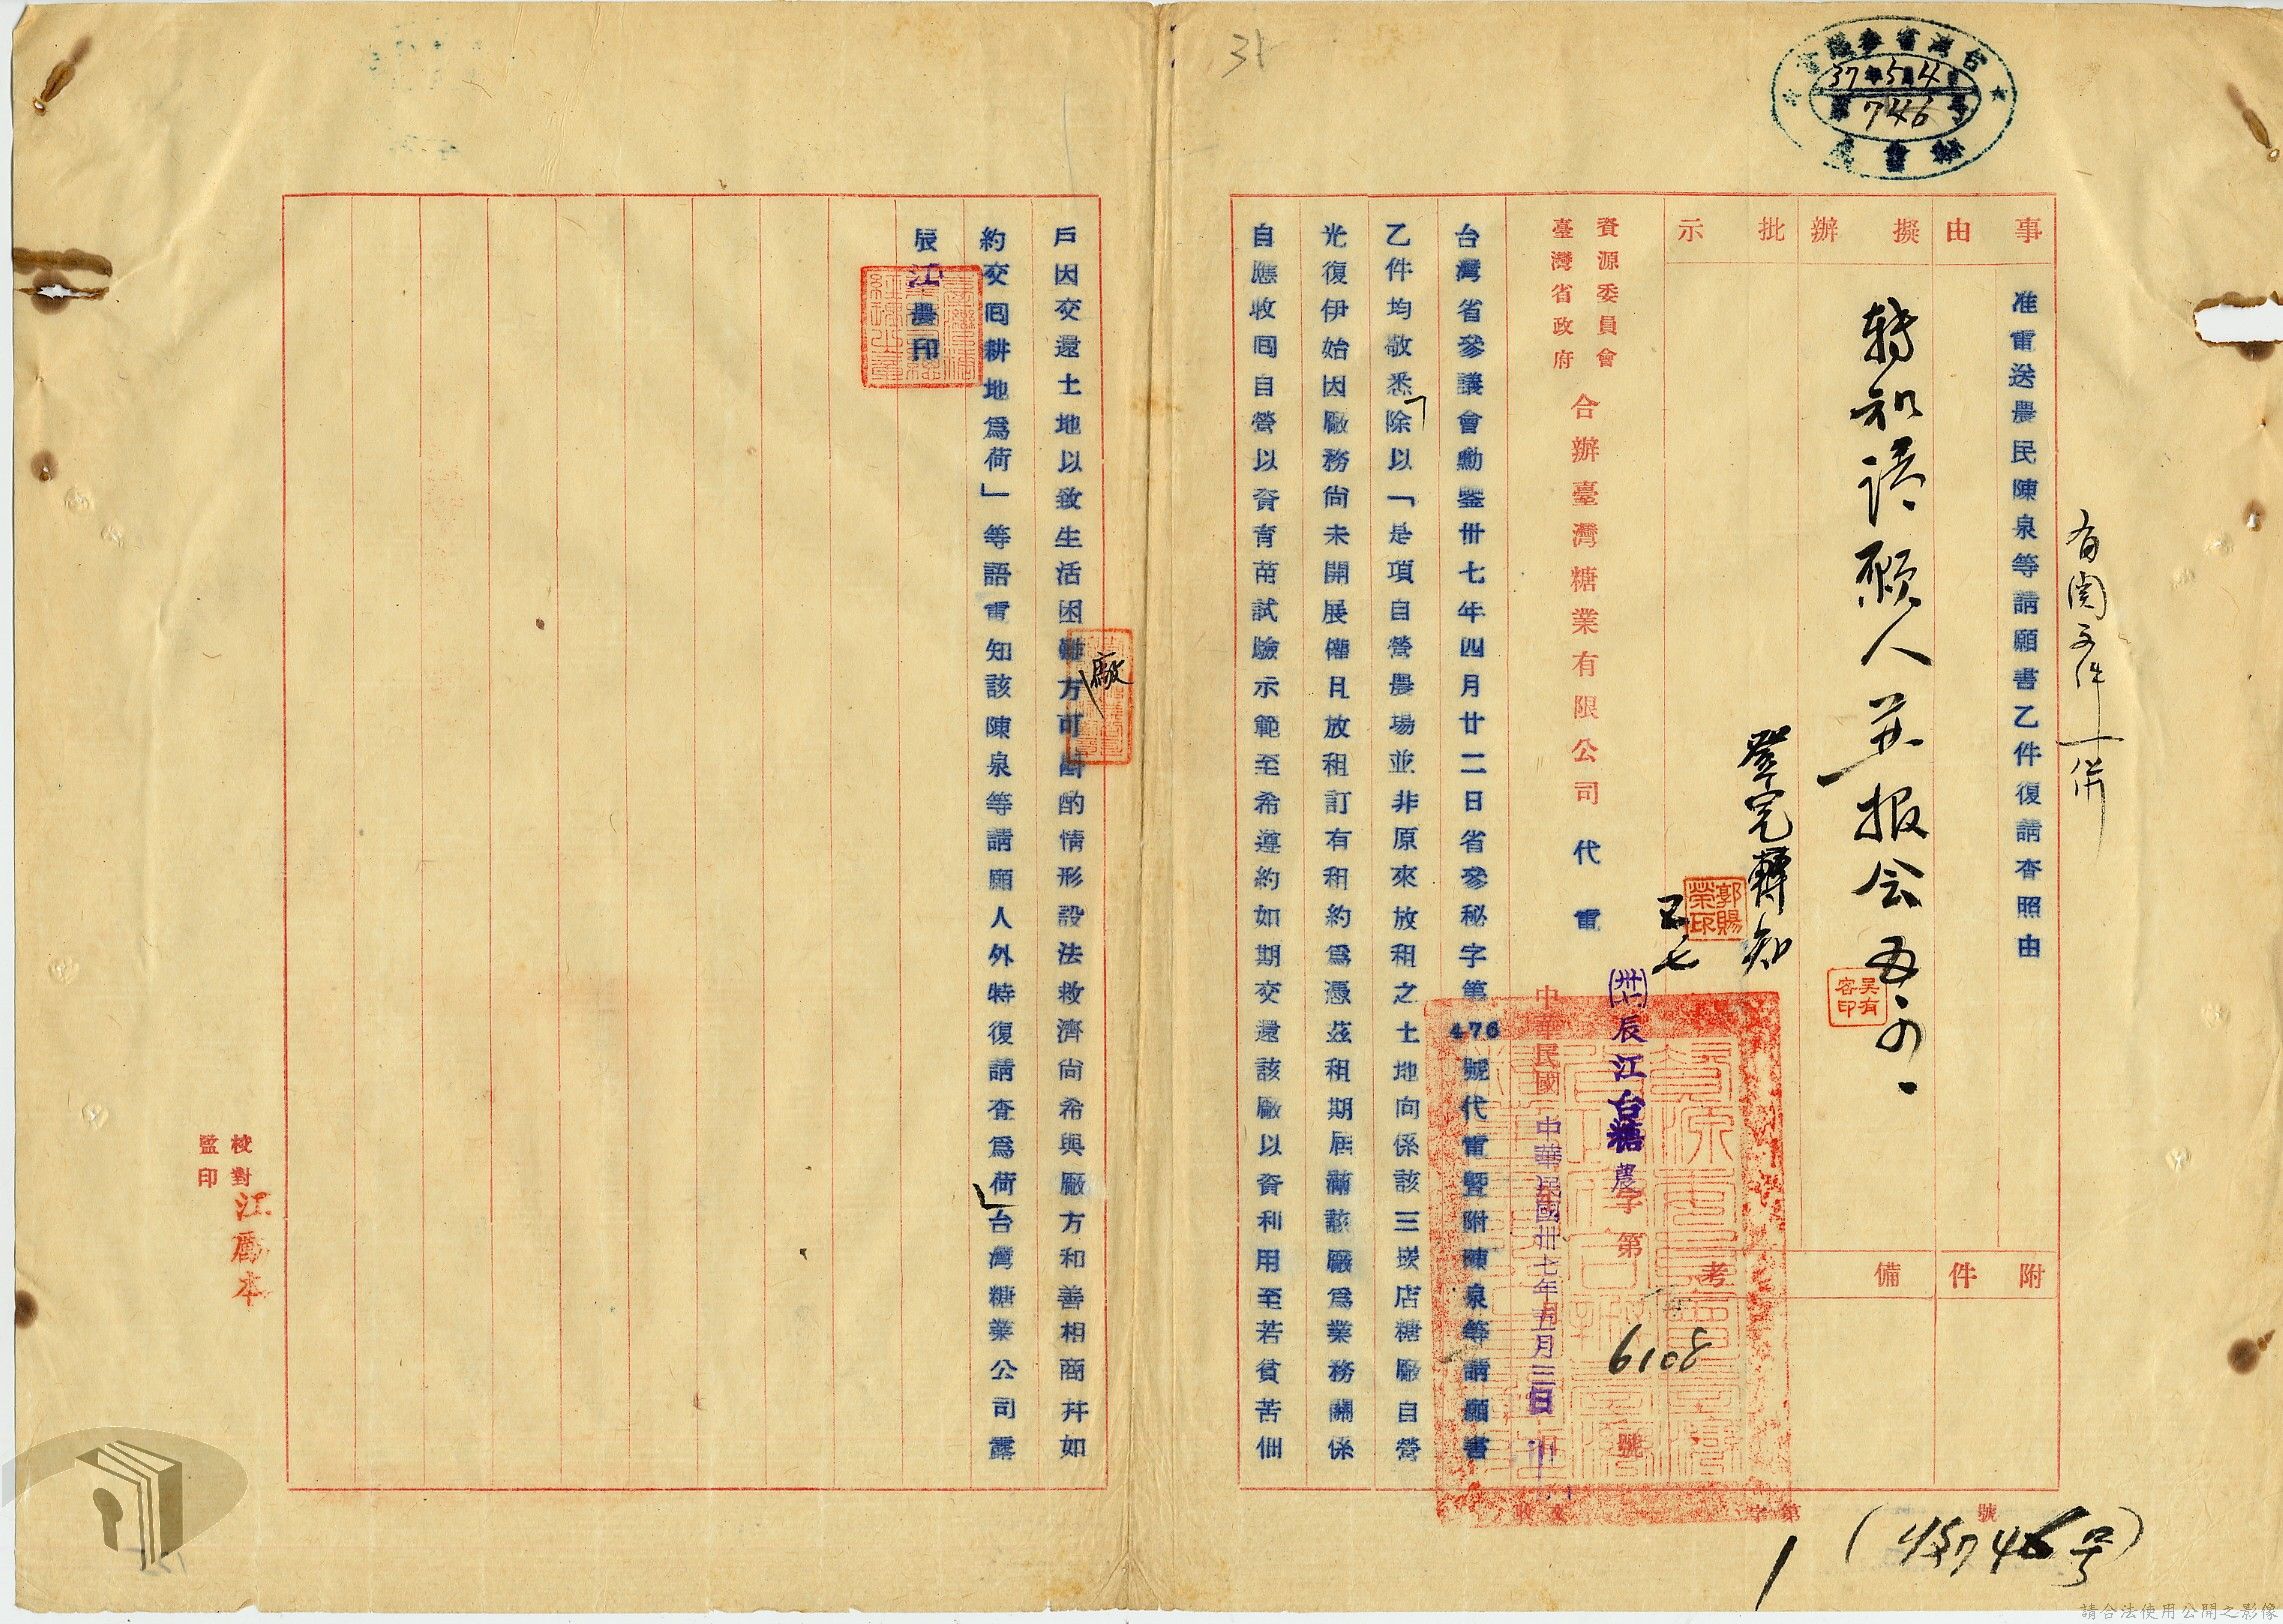 有関文件一併
事由
准電送農民陳泉等請願書乙件復請查照由
擬辦
轉知請願人並报会
吳有容印
批示
登完轉知
郭賜榮印
附件
備考
資源委員會
臺灣省政府
合辦臺灣糖業有限公司
代電
(卅七)辰江台糖農字第6108號
中華民國
中華民國卅七年五月三日
台灣省參議會勳鑒卅七年四月廿二日省參秘字第476號代電暨附陳泉等請願書
乙件均敬悉除以「是項自營農場並非原來放租之土地向係該三崁店糖廠自營
光復伊始因廠務尚未開展僅且放租訂有租約為憑茲租期屆滿該廠為業務關係
自應收囘自營以資育苗試驗示範至希遵約如期交還該廠以資利用至若貧苦佃
戶因交還土地以致生活困難廠方可斟酌情形設法救濟尚希與廠方和善相商幷如
約交囘耕地為荷」等語電知該陳泉等請願人外特復請查為荷台灣糖業公司露
辰江農印
校對
監印
江鳳本
收文 字第 號
(収746号)
1
31
台灣省參議會
37年5月4日
第746號
秘書處
請合法使用公開之影像